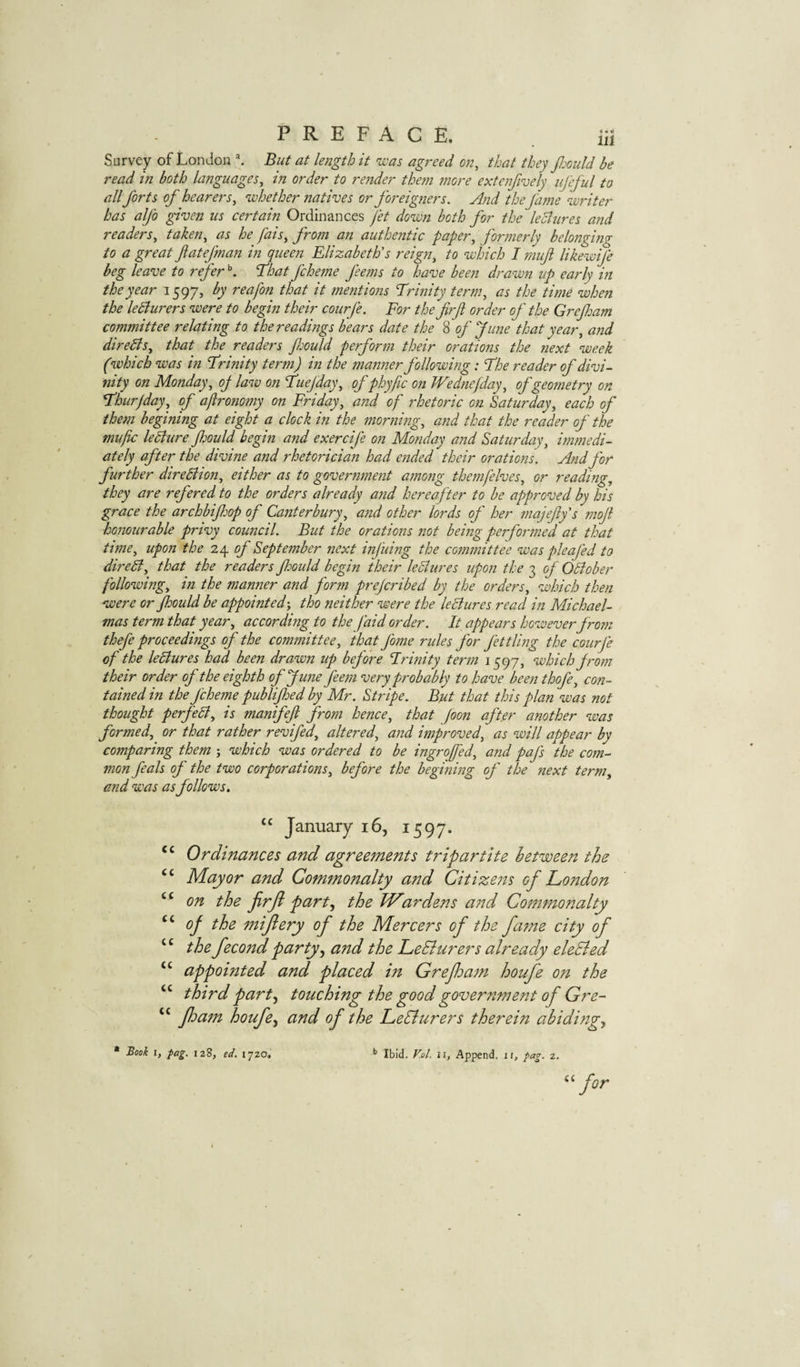 PREFACE. iii
Survey of London ª. But at length it was agreed on, that they ſhould be
read in both languages, in order to render them more extenſively uſeful to
all ſorts of hearers, whether natives or foreigners. And the ſame writer
has alſo given us certain Ordinances ſet down both for the lectures and
readers, taken, as he ſais, from an authentic paper, formerly belonging
to a great ſtateſman in queen Elizabeth's reign, to which I muſt likewiſe
beg leave to refer ᵇ. That ſcheme ſeems to have been drawn up early in
the year 1597, by reaſon that it mentions Trinity term, as the time when
the lecturers were to begin their courſe. For the firſt order of the Greſham
committee relating to the readings bears date the 8 of June that year, and
directs, that the readers ſhould perform their orations the next week
(which was in Trinity term) in the manner following: The reader of divi-
nity on Monday, of law on Tueſday, of phyſic on Wedneſday, of geometry on
Thurſday, of aſtronomy on Friday, and of rhetoric on Saturday, each of
them begining at eight a clock in the morning, and that the reader of the
muſic lecture ſhould begin and exerciſe on Monday and Saturday, immedi-
ately after the divine and rhetorician had ended their orations. And for
further direction, either as to government among themſelves, or reading,
they are refered to the orders already and hereafter to be approved by his
grace the archbiſhop of Canterbury, and other lords of her majeſty's moſt
honourable privy council. But the orations not being performed at that
time, upon the 24 of September next inſuing the committee was pleaſed to
direct, that the readers ſhould begin their lectures upon the 3 of October
following, in the manner and form preſcribed by the orders, which then
were or ſhould be appointed; tho neither were the lectures read in Michael-
mas term that year, according to the ſaid order. It appears however from
theſe proceedings of the committee, that ſome rules for ſettling the courſe
of the lectures had been drawn up before Trinity term 1597, which from
their order of the eighth of June ſeem very probably to have been thoſe, con-
tained in the ſcheme publiſhed by Mr. Stripe. But that this plan was not
thought perfect, is manifeſt from hence, that ſoon after another was
formed, or that rather reviſed, altered, and improved, as will appear by
comparing them; which was ordered to be ingroſſed, and paſs the com-
mon ſeals of the two corporations, before the begining of the next term,
and was as follows.
“ January 16, 1597.
“ Ordinances and agreements tripartite between the
“ Mayor and Commonalty and Citizens of London
“ on the firſt part, the Wardens and Commonalty
“ of the miſtery of the Mercers of the ſame city of
“ the ſecond party, and the Lecturers already elected
“ appointed and placed in Greſham houſe on the
“ third part, touching the good government of Gre-
“ ſham houſe, and of the Lecturers therein abiding,
ª Book 1, pag. 128, ed. 1720. ᵇ Ibid. Vol. 11, Append. 11, pag. 2.
“ for